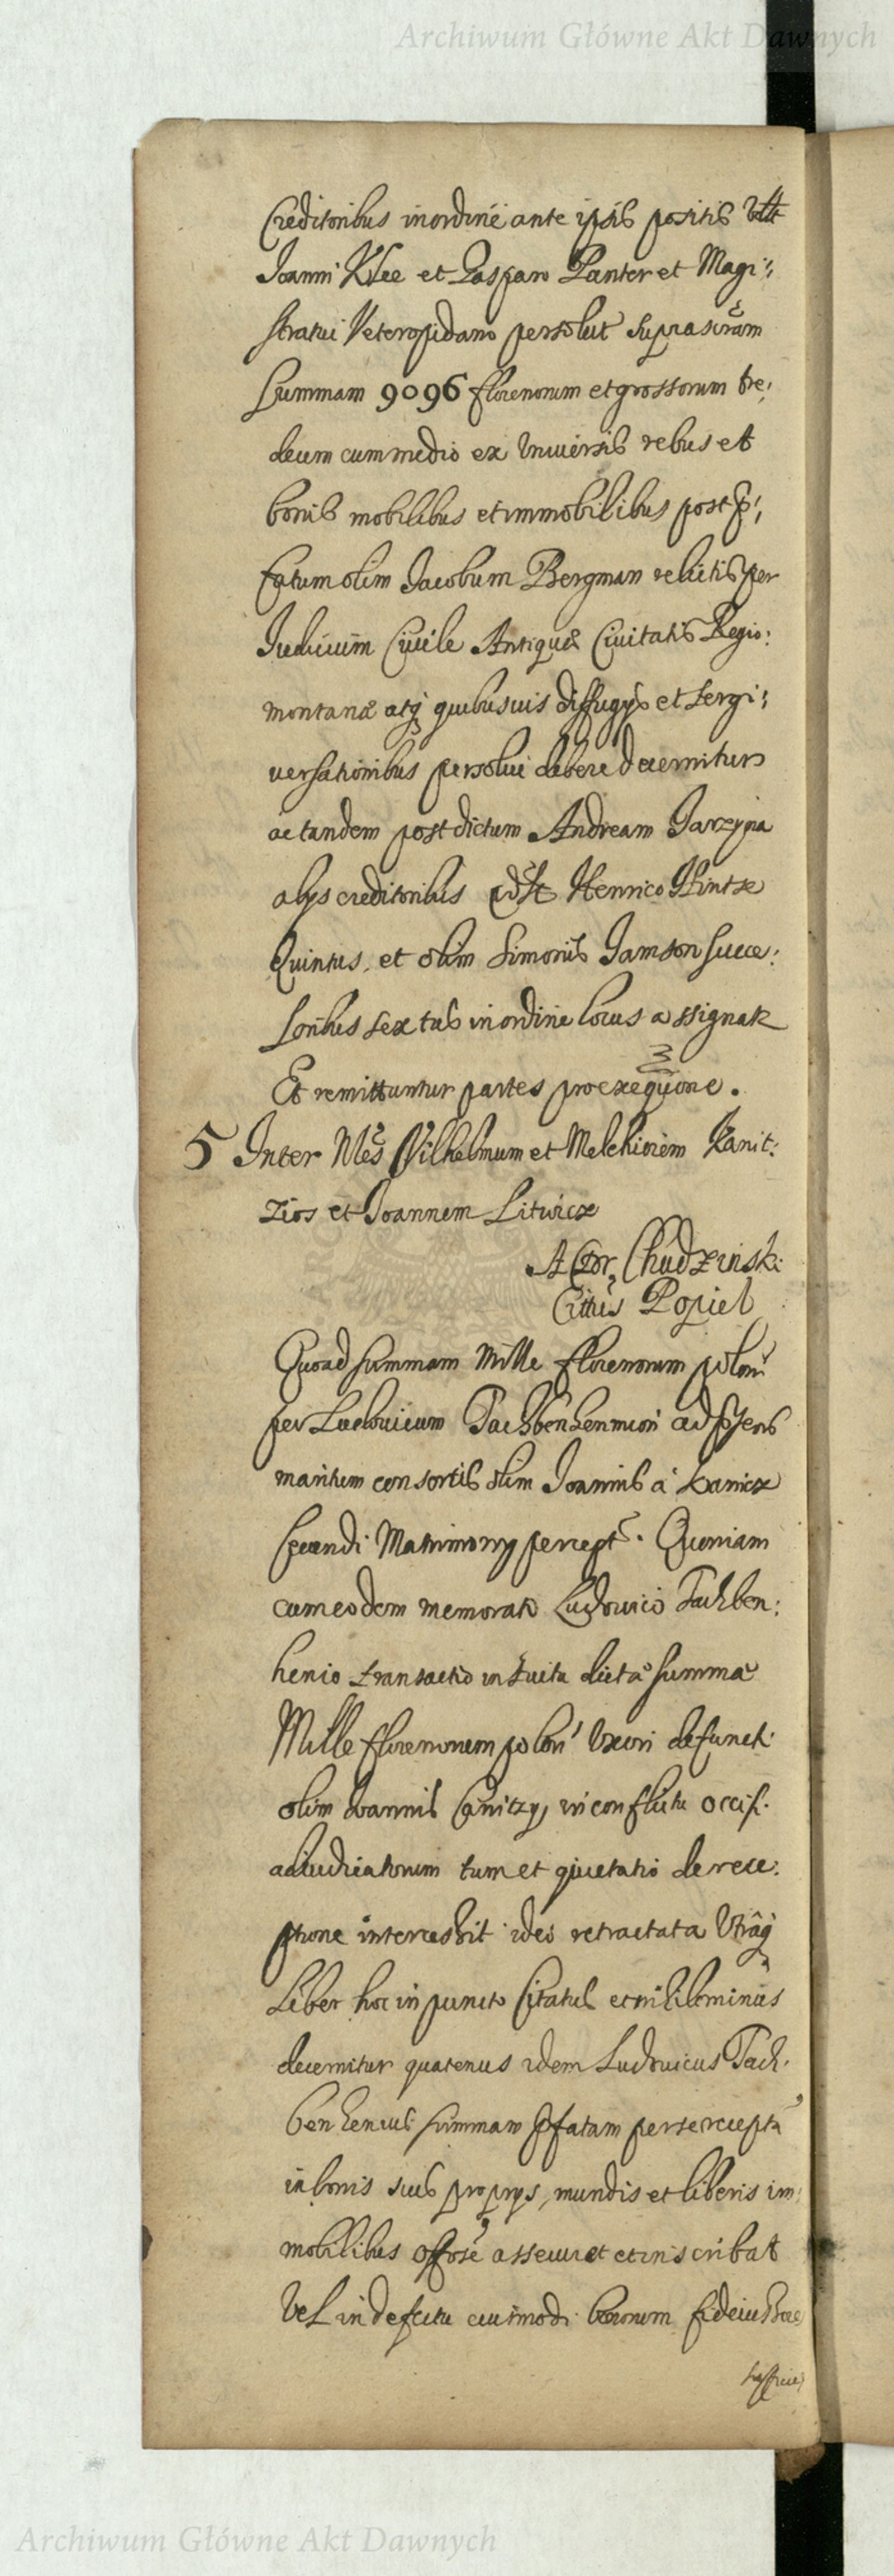 Archiwum Główne Akt Dawnych
Creditoribus in ordine ante ipsis positis
Joanni Klee et Gasparo Panter et Magi:
stratui Veteropidano persoluet suprascram
Summam 9096 florenorum et grossorum tre:
decem cum medio ex Vniuersis rebus et
bonis mobilibus et immobilibus post p:
fatum olim Jacobum Bergman relictis per
Judicium Ciuile Antiquæ Ciuitatis Regio:
montanæ absq quibusuis diffugys et tergi:
uersationibus persolui debere decernitur
ac tandem post dictum Andream Jarzyna
alys creditoribus Henrico Hintze
Quintus, et olim Simonis Jamson Succe:
soribus sextus in ordine locus assignatr
Et remittuntur partes pro exequone.
5 Inter Nles Vilhelmum et Melchiorem Kanit:
zios et Joannem Litwicz
Actor, Chudzinski
Cittus Popiel
Quoad summam Mille florenorum polon
per Ludouicum Tachbenhenium ad psens
maritum consortis olim Joannis a Kanicz
scundi Matrimony percept. Quoniam
cum eodem memorato Ludouico Tachben:
henio transactio intuitu dictæ summæ
Mille florenorum polon Vxori defuncti
olim Joannis Canitzy, in conflictu occisi
adiudicatorum tum et quietatio de rece:
ptione intercessit ideo retractata Vtraq
Liber hoc in puncto Citatus et nihilominus
decernitur quatenus idem Ludouicus Tach:
benhenius summam pfatam per se recepta
in bonis suis proprys, mundis et liberis im:
mobilibus assecuret et inscribat
Vel in defectu eiusmodi bonorum fideiussore
Archiwum Główne Akt Dawnych